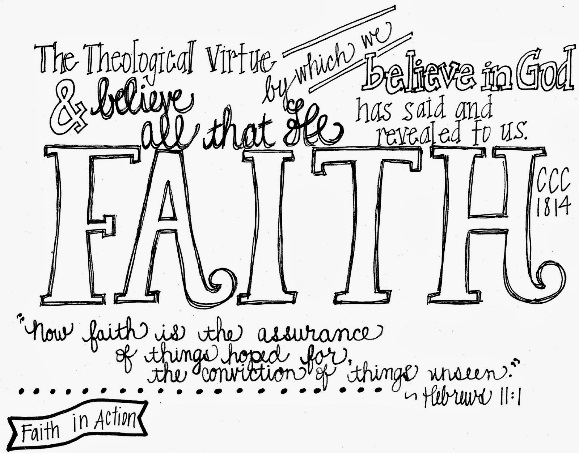 The Theological Virtue by which we believe in God
& believe all that He has said and revealed to us.
FAITH
CCC
1814
"Now faith is the assurance
of things hoped for,
the conviction of things unseen."
~ Hebrews 11:1
Faith in Action